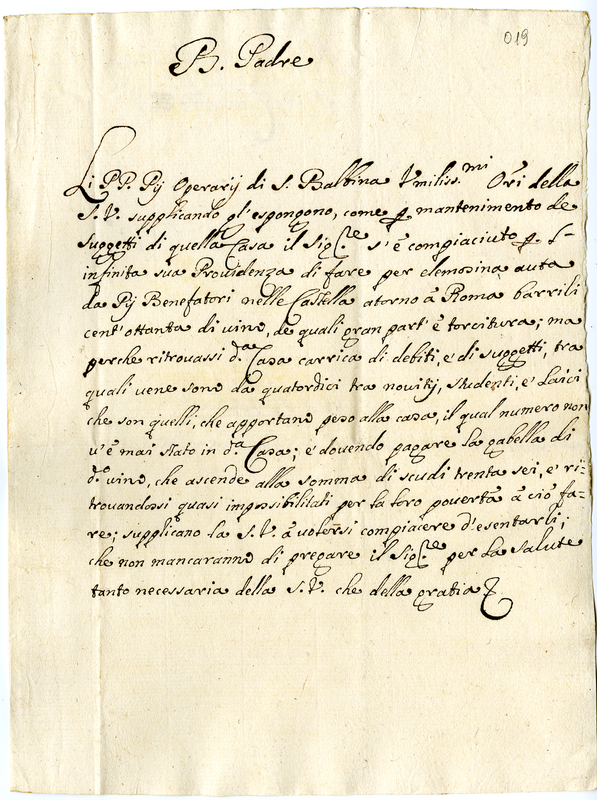 019
B. Padre
Li PP. Pij Operarij di S. Balbina Vmiliss.mi Ori della
S. V. supplicando gl'espongono, come p mantenimento de
suggetti di quella Casa il Sig.re s'è compiaciuto p. l'
infinita sua Providenza di fare per elemosina auta
da Pij Benefatori nelle Castella atorno à Roma barrili
cent'ottanta di vino, de quali gran part' è torcitura; ma
perche ritrovassi d.a Casa carrica di debiti, e di suggetti, tra
quali vene sono da quatordici tra novitij, studenti, e Laici
che son quelli, che apportano peso alla casa, il qual numero non
v'è mai stato in d.a Casa; e dovendo pagare la gabella di
d.o vino, che ascende alla somma di scudi trenta sei, e ri-
trovandosi quasi impossibilitati per la loro povertà à ciò fa-
re; supplicano la S. V. à volersi compiacere d'esentarli;
che non mancaranno di pregare il Sig.re per La salute
tanto necessaria della S. V. che della gratia